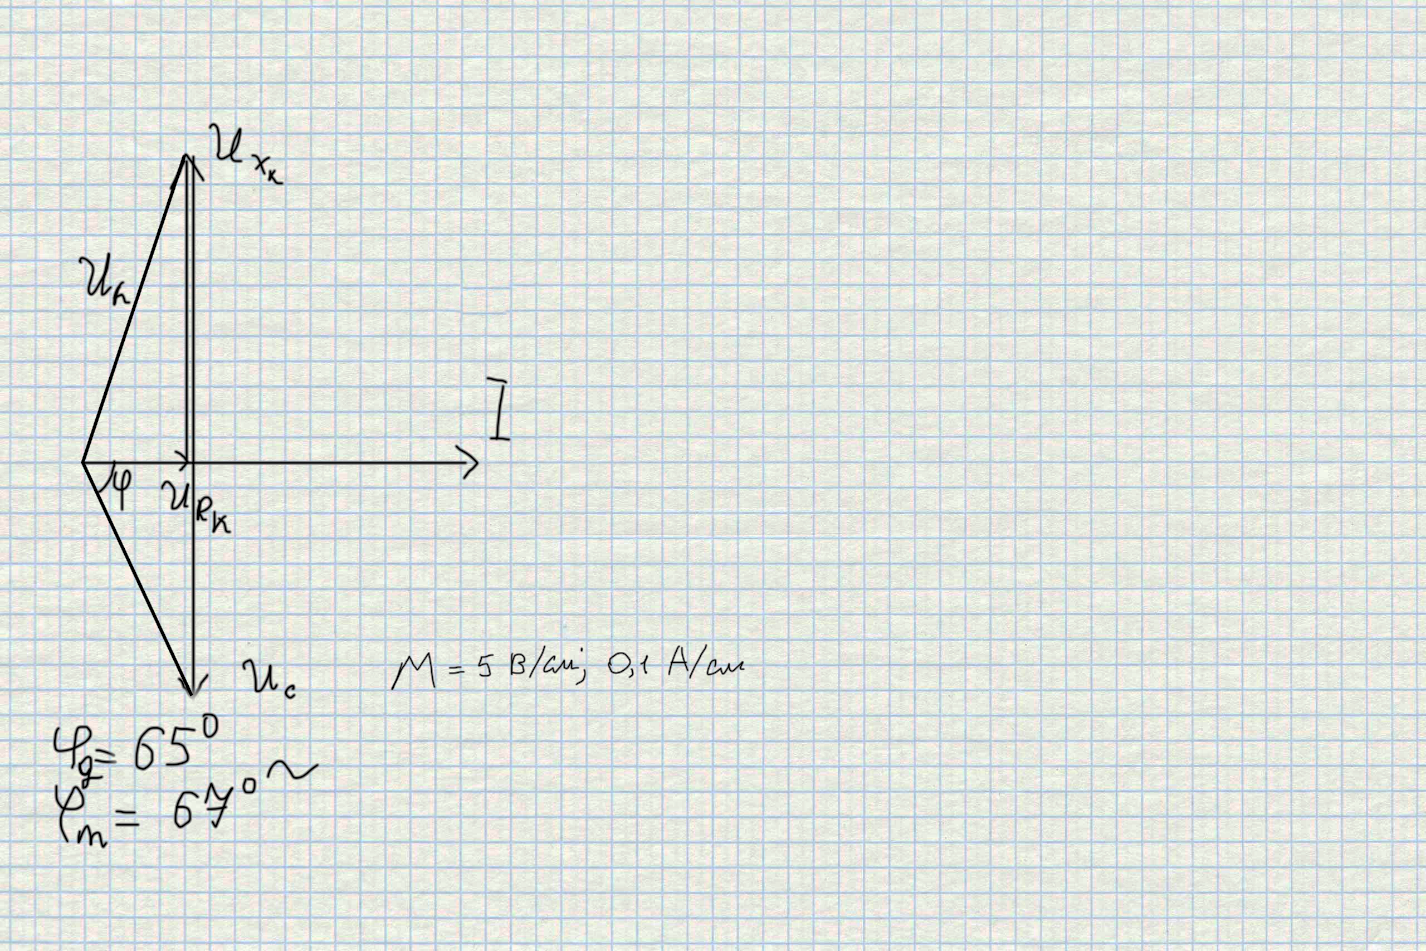 U_Xк
Uк
I
φ
U_Rк
Uc
M = 5 В/см; 0,1 А/см
φg = 65⁰
φm = 67⁰ ~